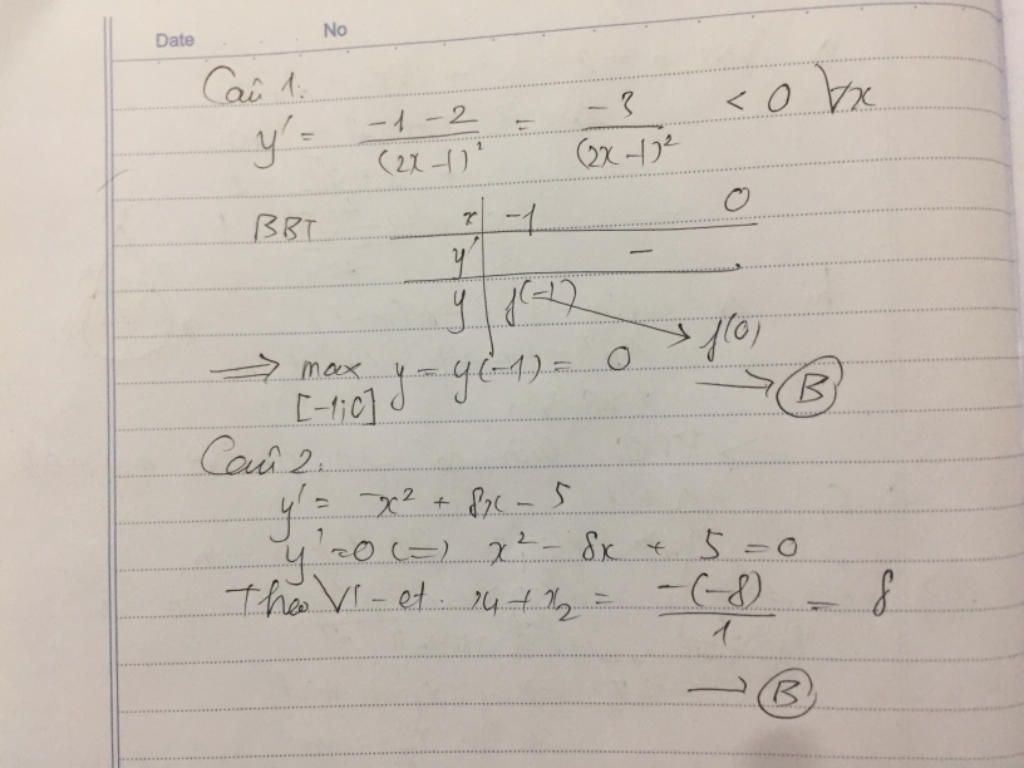 Date No
Câu 1:
y' = \frac{-1-2}{(2x-1)^2} = \frac{-3}{(2x-1)^2} < 0 ∀x
BBT
x | -1 0
y' | -
y | f(-1) → f(0)
⇒ max y = y(-1) = 0 → B
[-1;0]
Câu 2:
y' = -x² + 8x - 5
y' = 0 (=) x² - 8x + 5 = 0
Theo Vi-et: x₁ + x₂ = \frac{-(-8)}{1} = 8
→ B